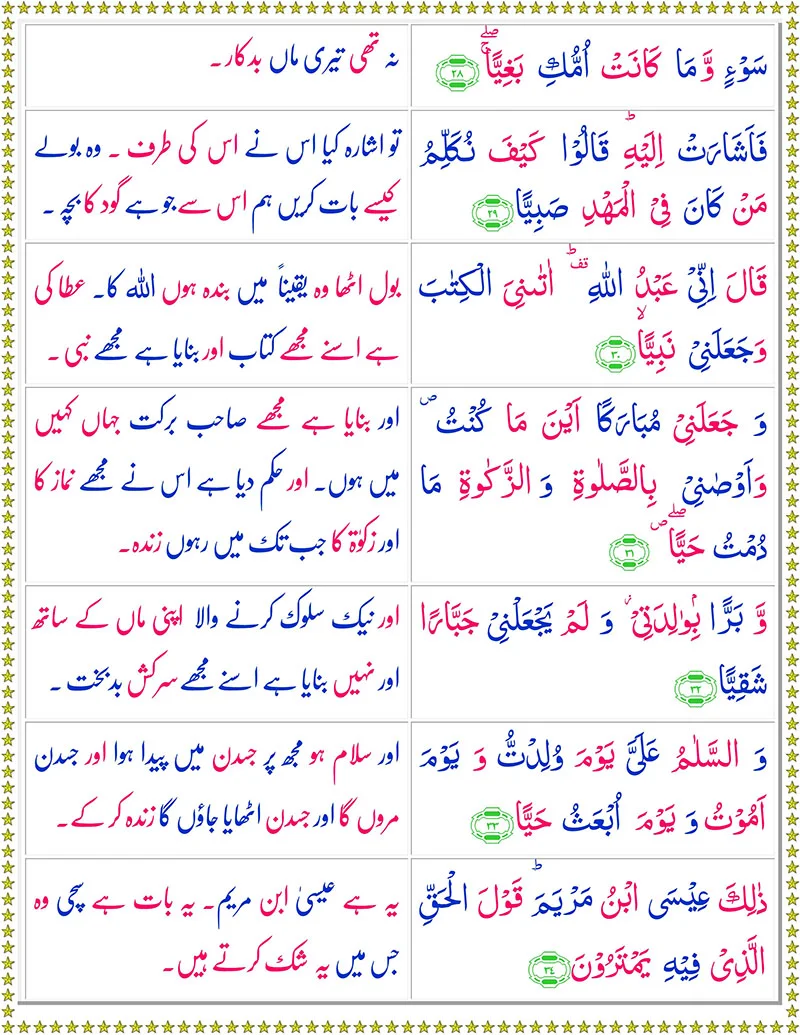 سَوْءٍ وَّ مَا كَانَتْ اُمُّكِ بَغِیًّاۖۚ ﴿۲۸﴾
نہ تھی تیری ماں بدکار۔
فَاَشَارَتْ اِلَیْهِؕ قَالُوْا كَیْفَ نُكَلِّمُ
مَنْ كَانَ فِی الْمَهْدِ صَبِیًّا ﴿۲۹﴾
تو اشارہ کیا اس نے اس کی طرف ۔ وہ بولے
کیسے بات کریں ہم اس سے جو ہے گود کا بچہ ۔
قَالَ اِنِّیْ عَبْدُ اللّٰهِ ؕقف اٰتٰىنِیَ الْكِتٰبَ
وَجَعَلَنِیْ نَبِیًّاۙ ﴿۳۰﴾
بول اٹھا وہ یقیناً میں بندہ ہوں اللہ کا۔ عطا کی
ہے اسنے مجھے کتاب اور بنایا ہے مجھے نبی ۔
وَ جَعَلَنِیْ مُبٰرَكًا اَیْنَ مَا كُنْتُ ۪
وَاَوْصٰنِیْ بِالصَّلٰوةِ وَ الزَّكٰوةِ مَا
دُمْتُ حَیًّا۪ۖ ﴿۳۱﴾
اور بنایا ہے مجھے صاحب برکت جہاں کہیں
میں ہوں۔ اور حکم دیا ہے اس نے مجھے نماز کا
اور زکوٰۃ کا جب تک میں رہوں زندہ۔
وَّ بَرًّۢا بِوَالِدَتِیْ٘ وَ لَمْ یَجْعَلْنِیْ جَبَّارًا
شَقِیًّا ﴿۳۲﴾
اور نیک سلوک کرنے والا اپنی ماں کے ساتھ
اور نہیں بنایا ہے اسنے مجھے سرکش بدبخت ۔
وَ السَّلٰمُ عَلَیَّ یَوْمَ وُلِدْتُّ وَ یَوْمَ
اَمُوْتُ وَ یَوْمَ اُبْعَثُ حَیًّا ﴿۳۳﴾
اور سلام ہو مجھ پر جسدن میں پیدا ہوا اور جسدن
مروں گا اور جسدن اٹھایا جاؤں گا زندہ کر کے۔
ذٰلِكَ عِیْسَی ابْنُ مَرْیَمَۚ قَوْلَ الْحَقِّ
الَّذِیْ فِیْهِ یَمْتَرُوْنَ ﴿۳۴﴾
یہ ہے عیسیٰ ابن مریم۔ یہ بات ہے سچی وہ
جس میں یہ شک کرتے ہیں۔